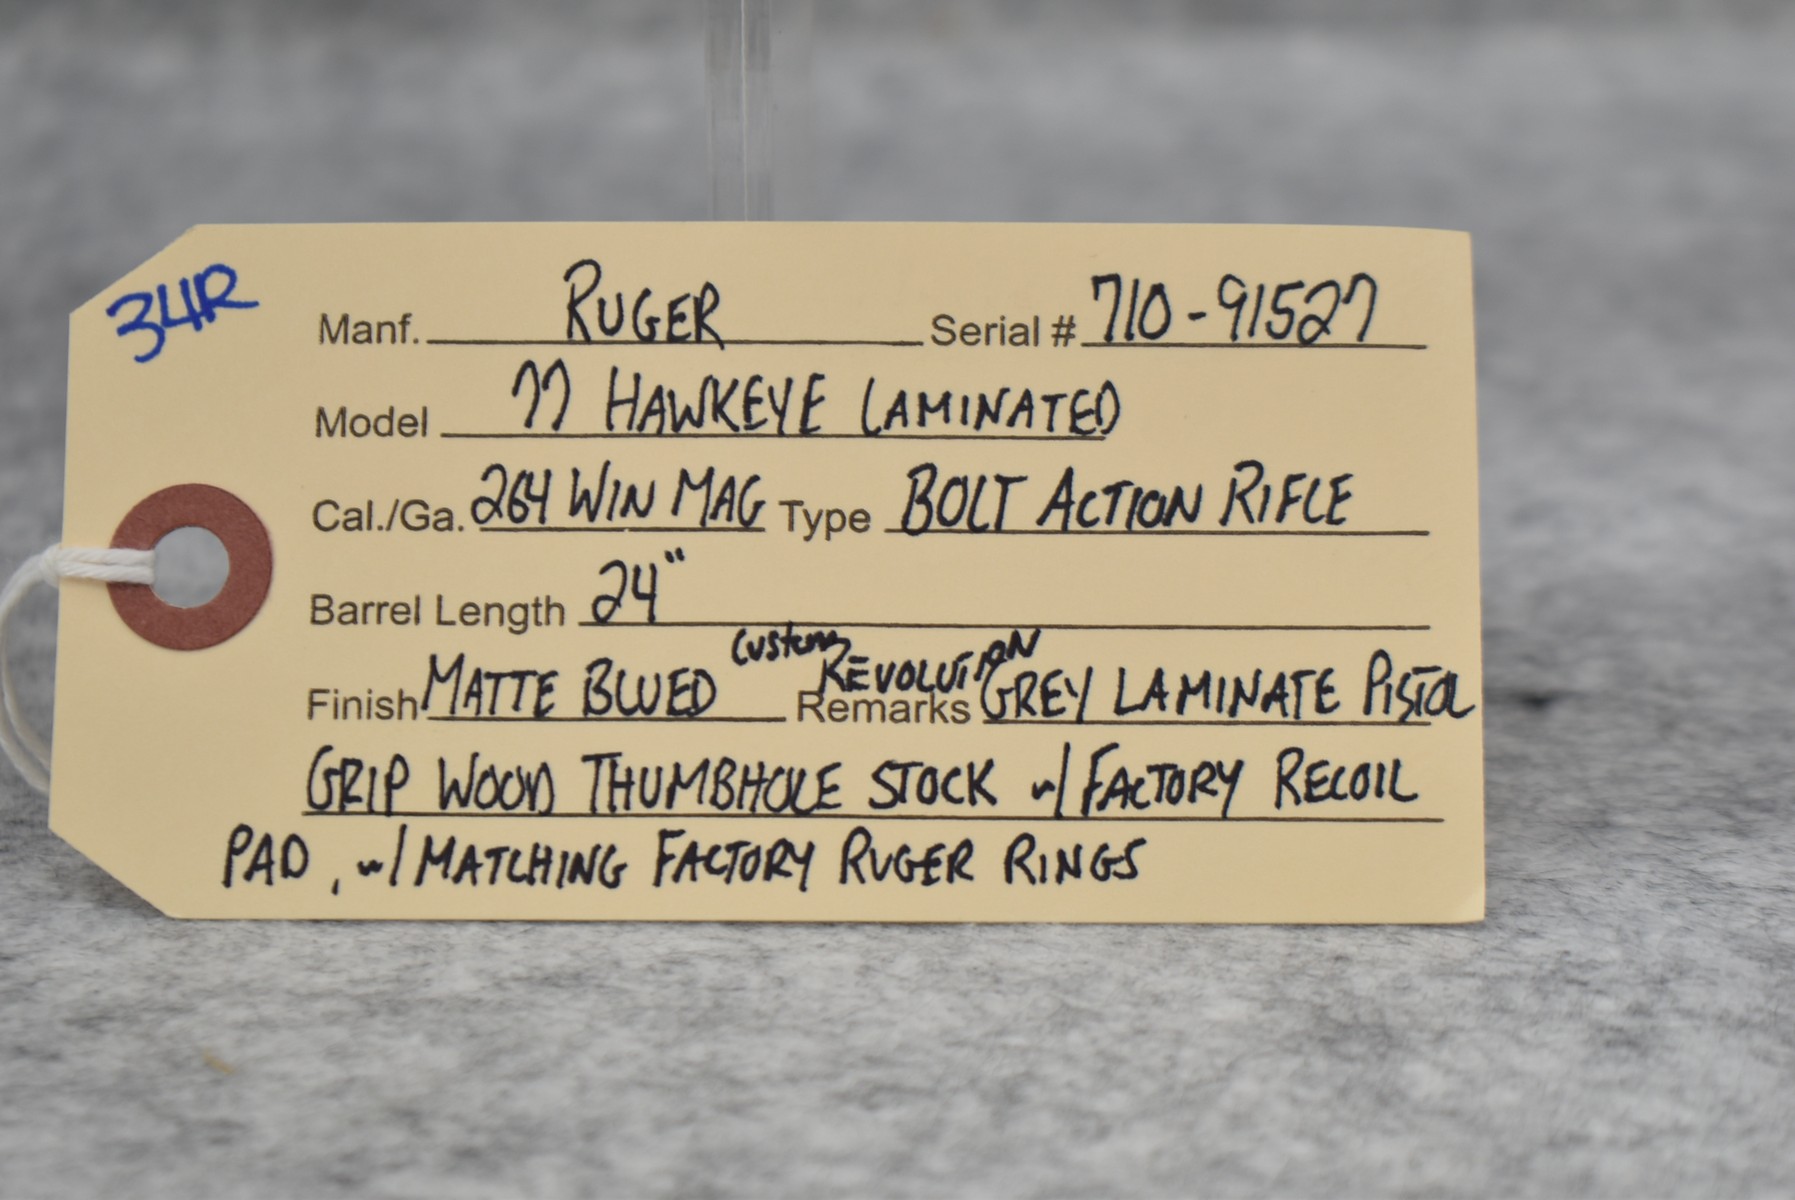 34R
Manf. RUGER Serial # 710-91527
Model 77 HAWKEYE LAMINATED
Cal./Ga. 264 WIN MAG Type BOLT ACTION RIFLE
Barrel Length 24"
Custom REVOLUTION
Finish MATTE BLUED Remarks GREY LAMINATE PISTOL
GRIP WOOD THUMBHOLE STOCK w/ FACTORY RECOIL
PAD, w/ MATCHING FACTORY RUGER RINGS